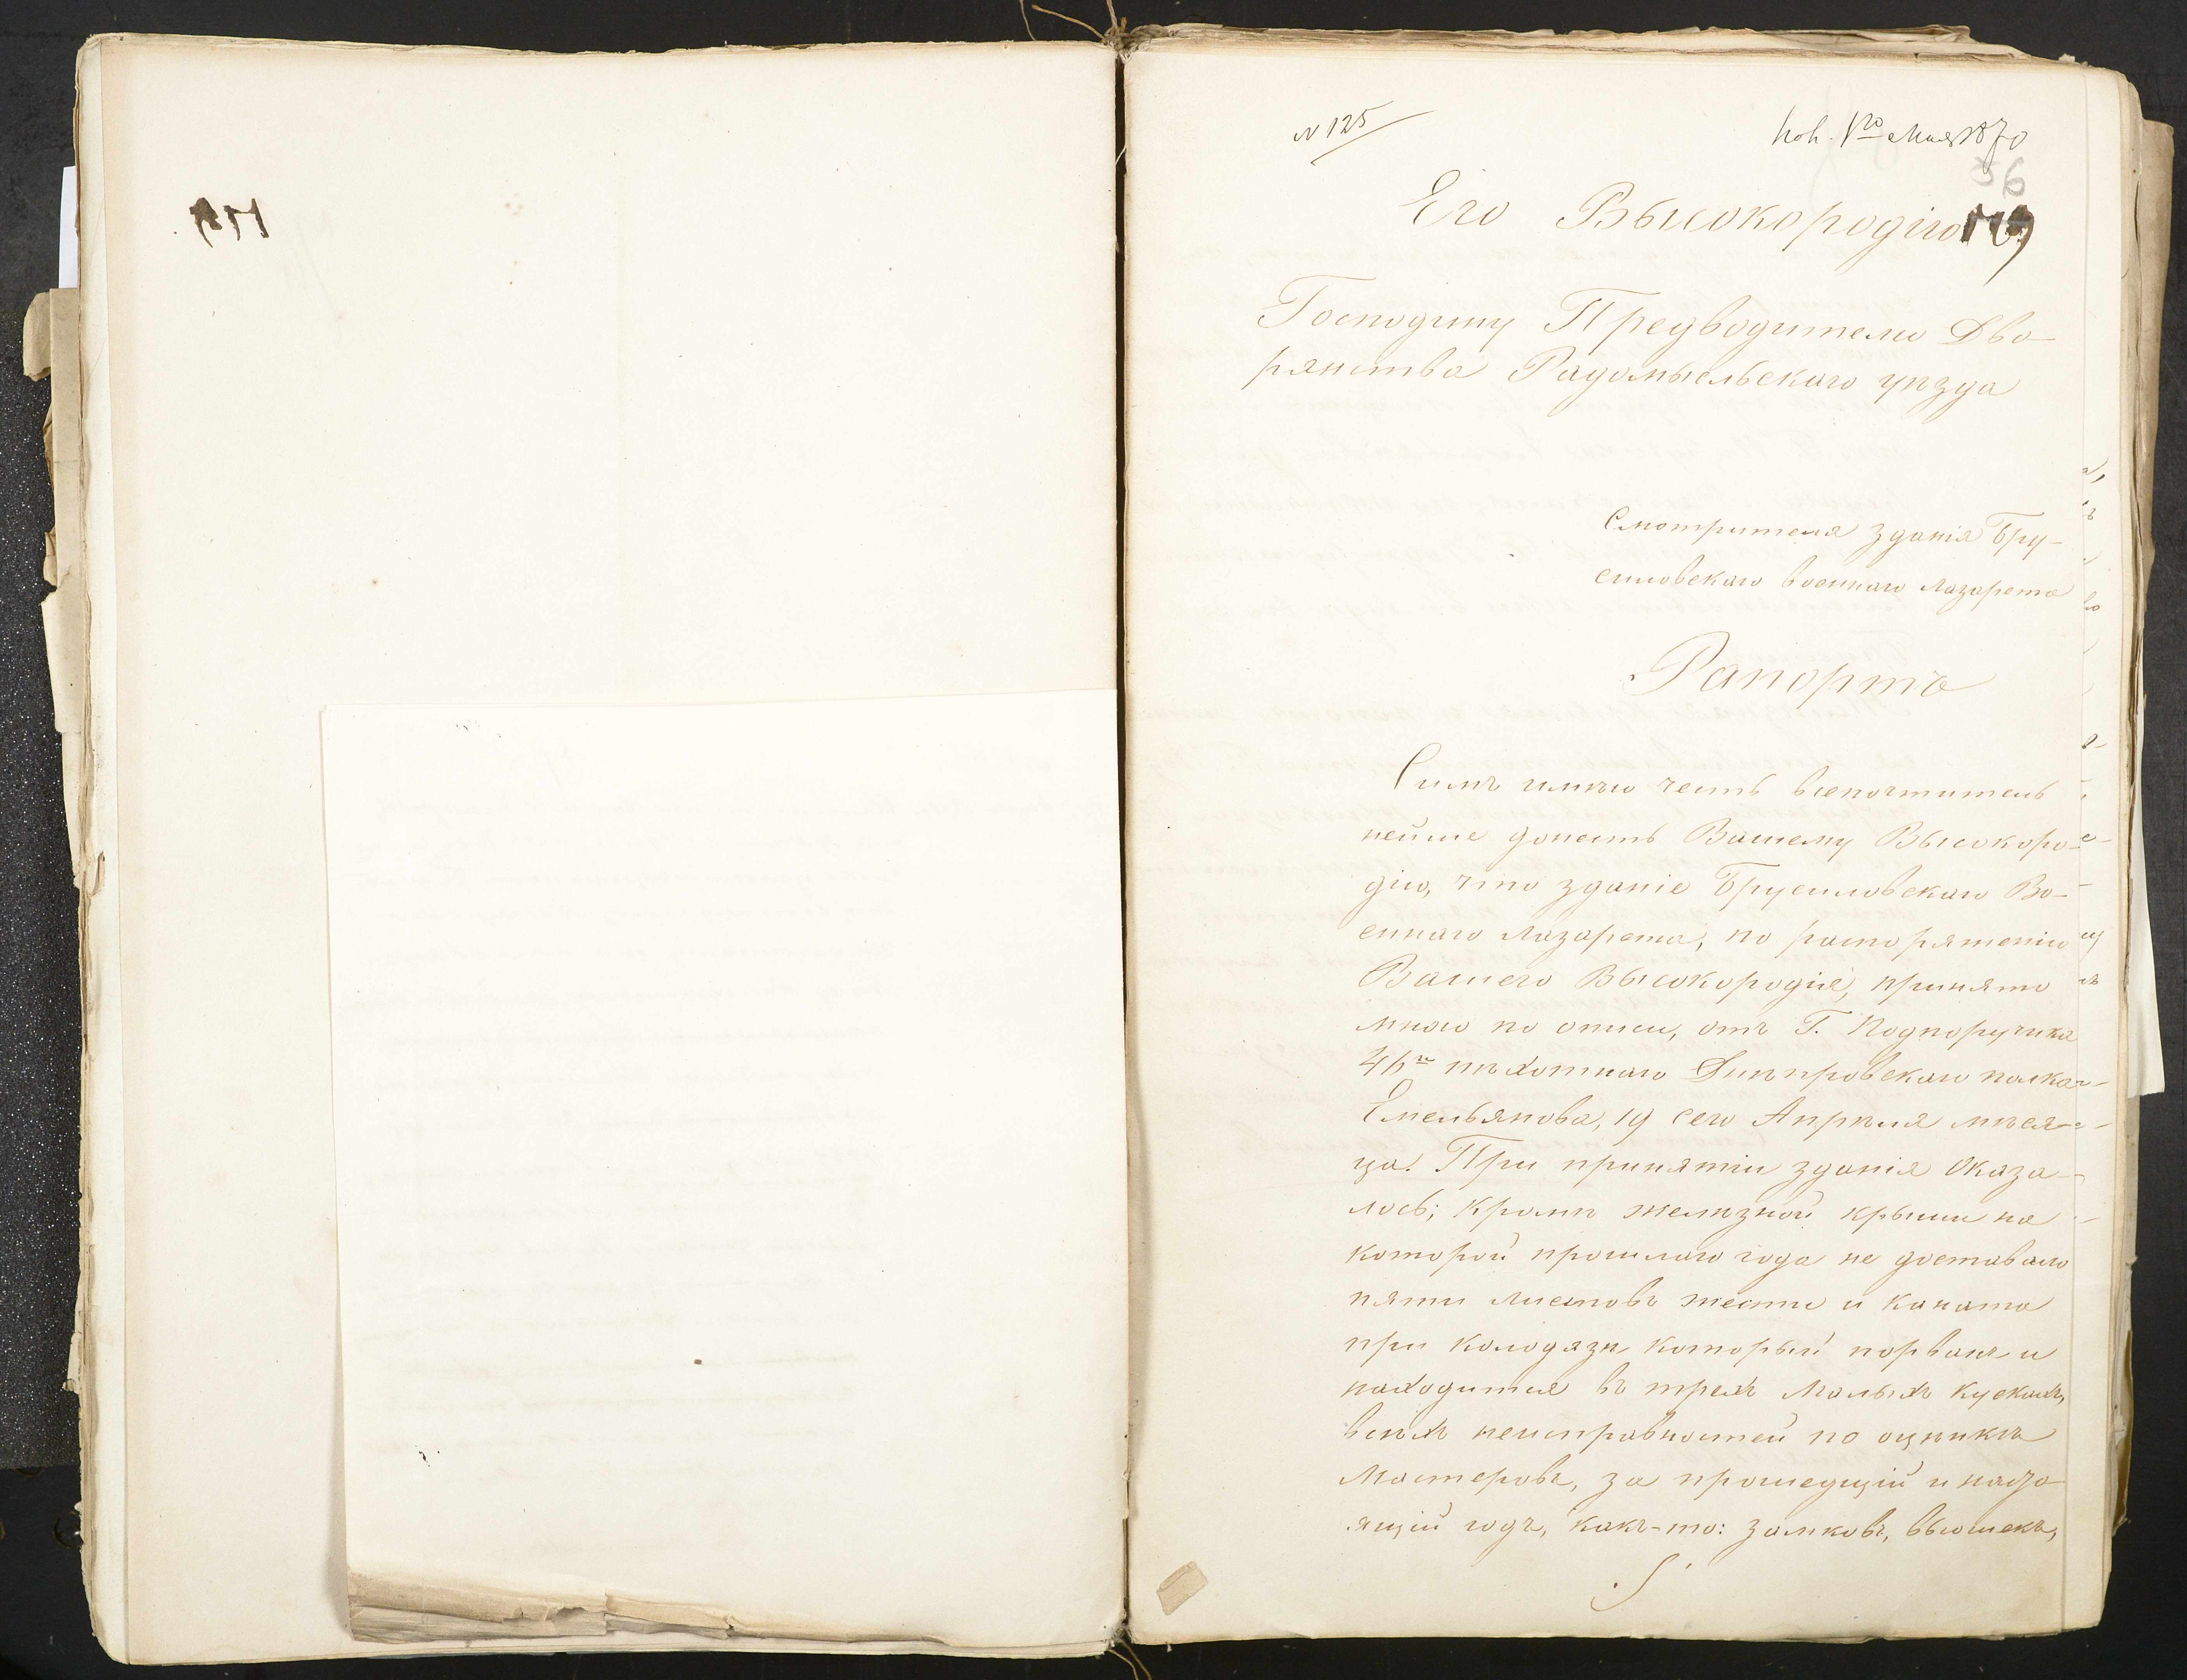 N 125
Пол. 1го Мая 1870
56
Его Высокородію
Господину Предводителю Дво-
рянства Радомысльскаго уѣзда
Смотрителя зданія Бру-
силовскаго военнаго лазарета
Рапортъ
Симъ имѣю честь всепочтитель
нейше донесть Вашему Высокоро-
дію, что зданіе Брусиловскаго Во-
еннаго лазарета, по распоряженію
Вашего Высокородія, принято
мною по описи, отъ Г. Подпоручика
46го пѣхотнаго Днѣпровскаго полка
Емельянова, 19 сего Апрѣля мѣся-
ца. При принятіи зданія Оказа-
лось; кромѣ желѣзной крыши на
которой прошлаго года не доставало
пяти листовъ жести и каната
при колодязѣ который порванъ и
находится въ трехъ малыхъ кускахъ,
всѣхъ неисправностей по оцѣнкѣ
Мастеровъ, за прошедщій и насто
ящій годъ, какъ-то: замковъ, вьюшекъ,